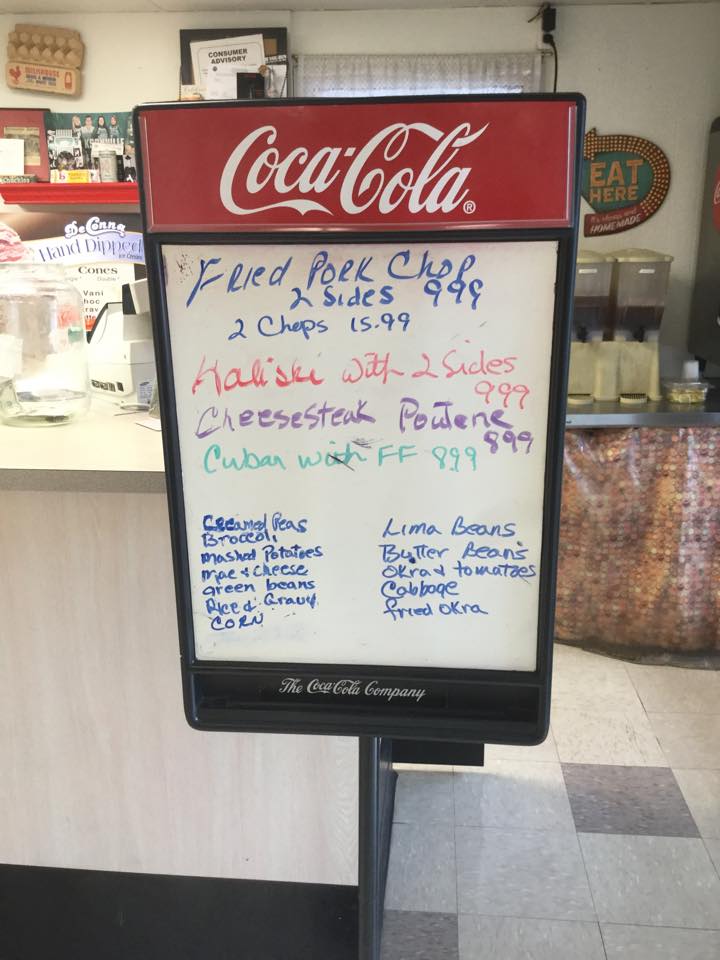 CONSUMER
ADVISORY
Coca-Cola®
EAT
HERE
It's always
HOMEMADE
DeConna
Hand Dipped
Ice Cream
Cones
Fried Pork Chop
2 Sides 999
2 Chops 15.99
Haliski with 2 Sides
999
Cheesesteak Poutene
899
Cuban with FF 899
Creamed Peas
Broccoli
Mashed Potatoes
Mac & Cheese
green beans
Rice & Gravy
CORN
Lima Beans
Butter Beans
Okra & tomatoes
Cabbage
fried okra
The Coca-Cola Company